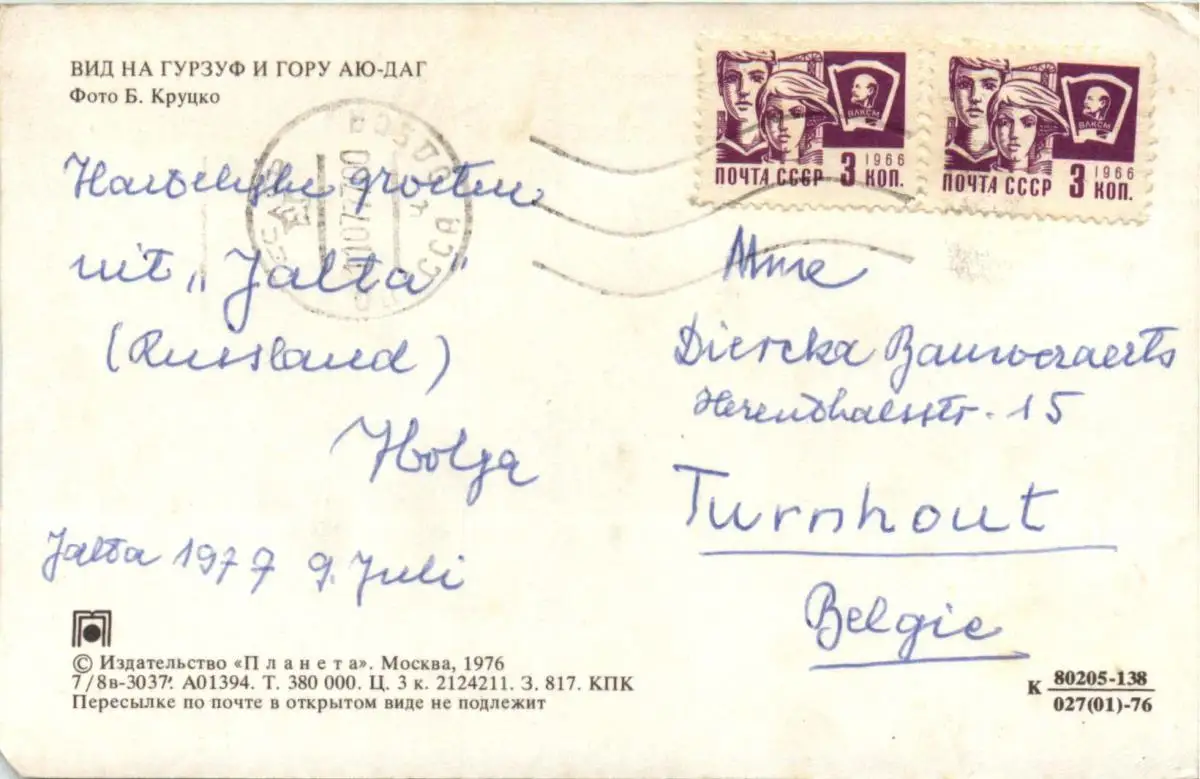 ВИД НА ГУРЗУФ И ГОРУ АЮ-ДАГ
Фото Б. Круцко
Hartelijke groeten
uit „Jalta“
(Russland)
Holga
Jalta 1977 9. Juli
© Издательство «Планета». Москва, 1976
7/8в-3037. А01394. Т. 380 000. Ц. 3 к. 2124211. З. 817. КПК
Пересылке по почте в открытом виде не подлежит
ВЛКСМ
1966
ПОЧТА СССР 3 КОП.
ВЛКСМ
1966
ПОЧТА СССР 3 КОП.
СССР
Mme
Dierckx
Herenthalsstr. 15
Turnhout
Belgie
К 80205-138
027(01)-76